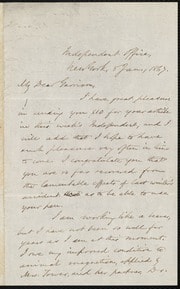 Independent Office,
New York, 8 June, 1867.
My Dear Garrison,
I have great pleasure
in sending you $50 for your article
in this week's Independent, and I
will add that I hope to have
such pleasure very often in time
to come. I congratulate you that
you are so far recovered from
the lamentable effects of last winter's
accident as to be able to use
your pen.
I am working like a
but I have not been so well for
years as I am at this moment.
I owe my improved condition to
animal magnetism, applied by
New Tower, and her partner, Dr.